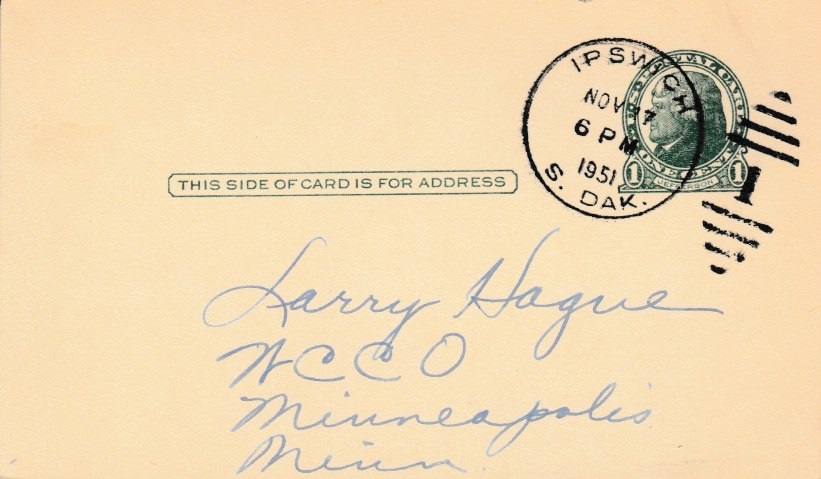 IPSWICH
NOV 17
6 PM
1951
S. DAK.
1 JEFFERSON 1
THIS SIDE OF CARD IS FOR ADDRESS
Larry Hague
WCCO
Minneapolis
Minn.